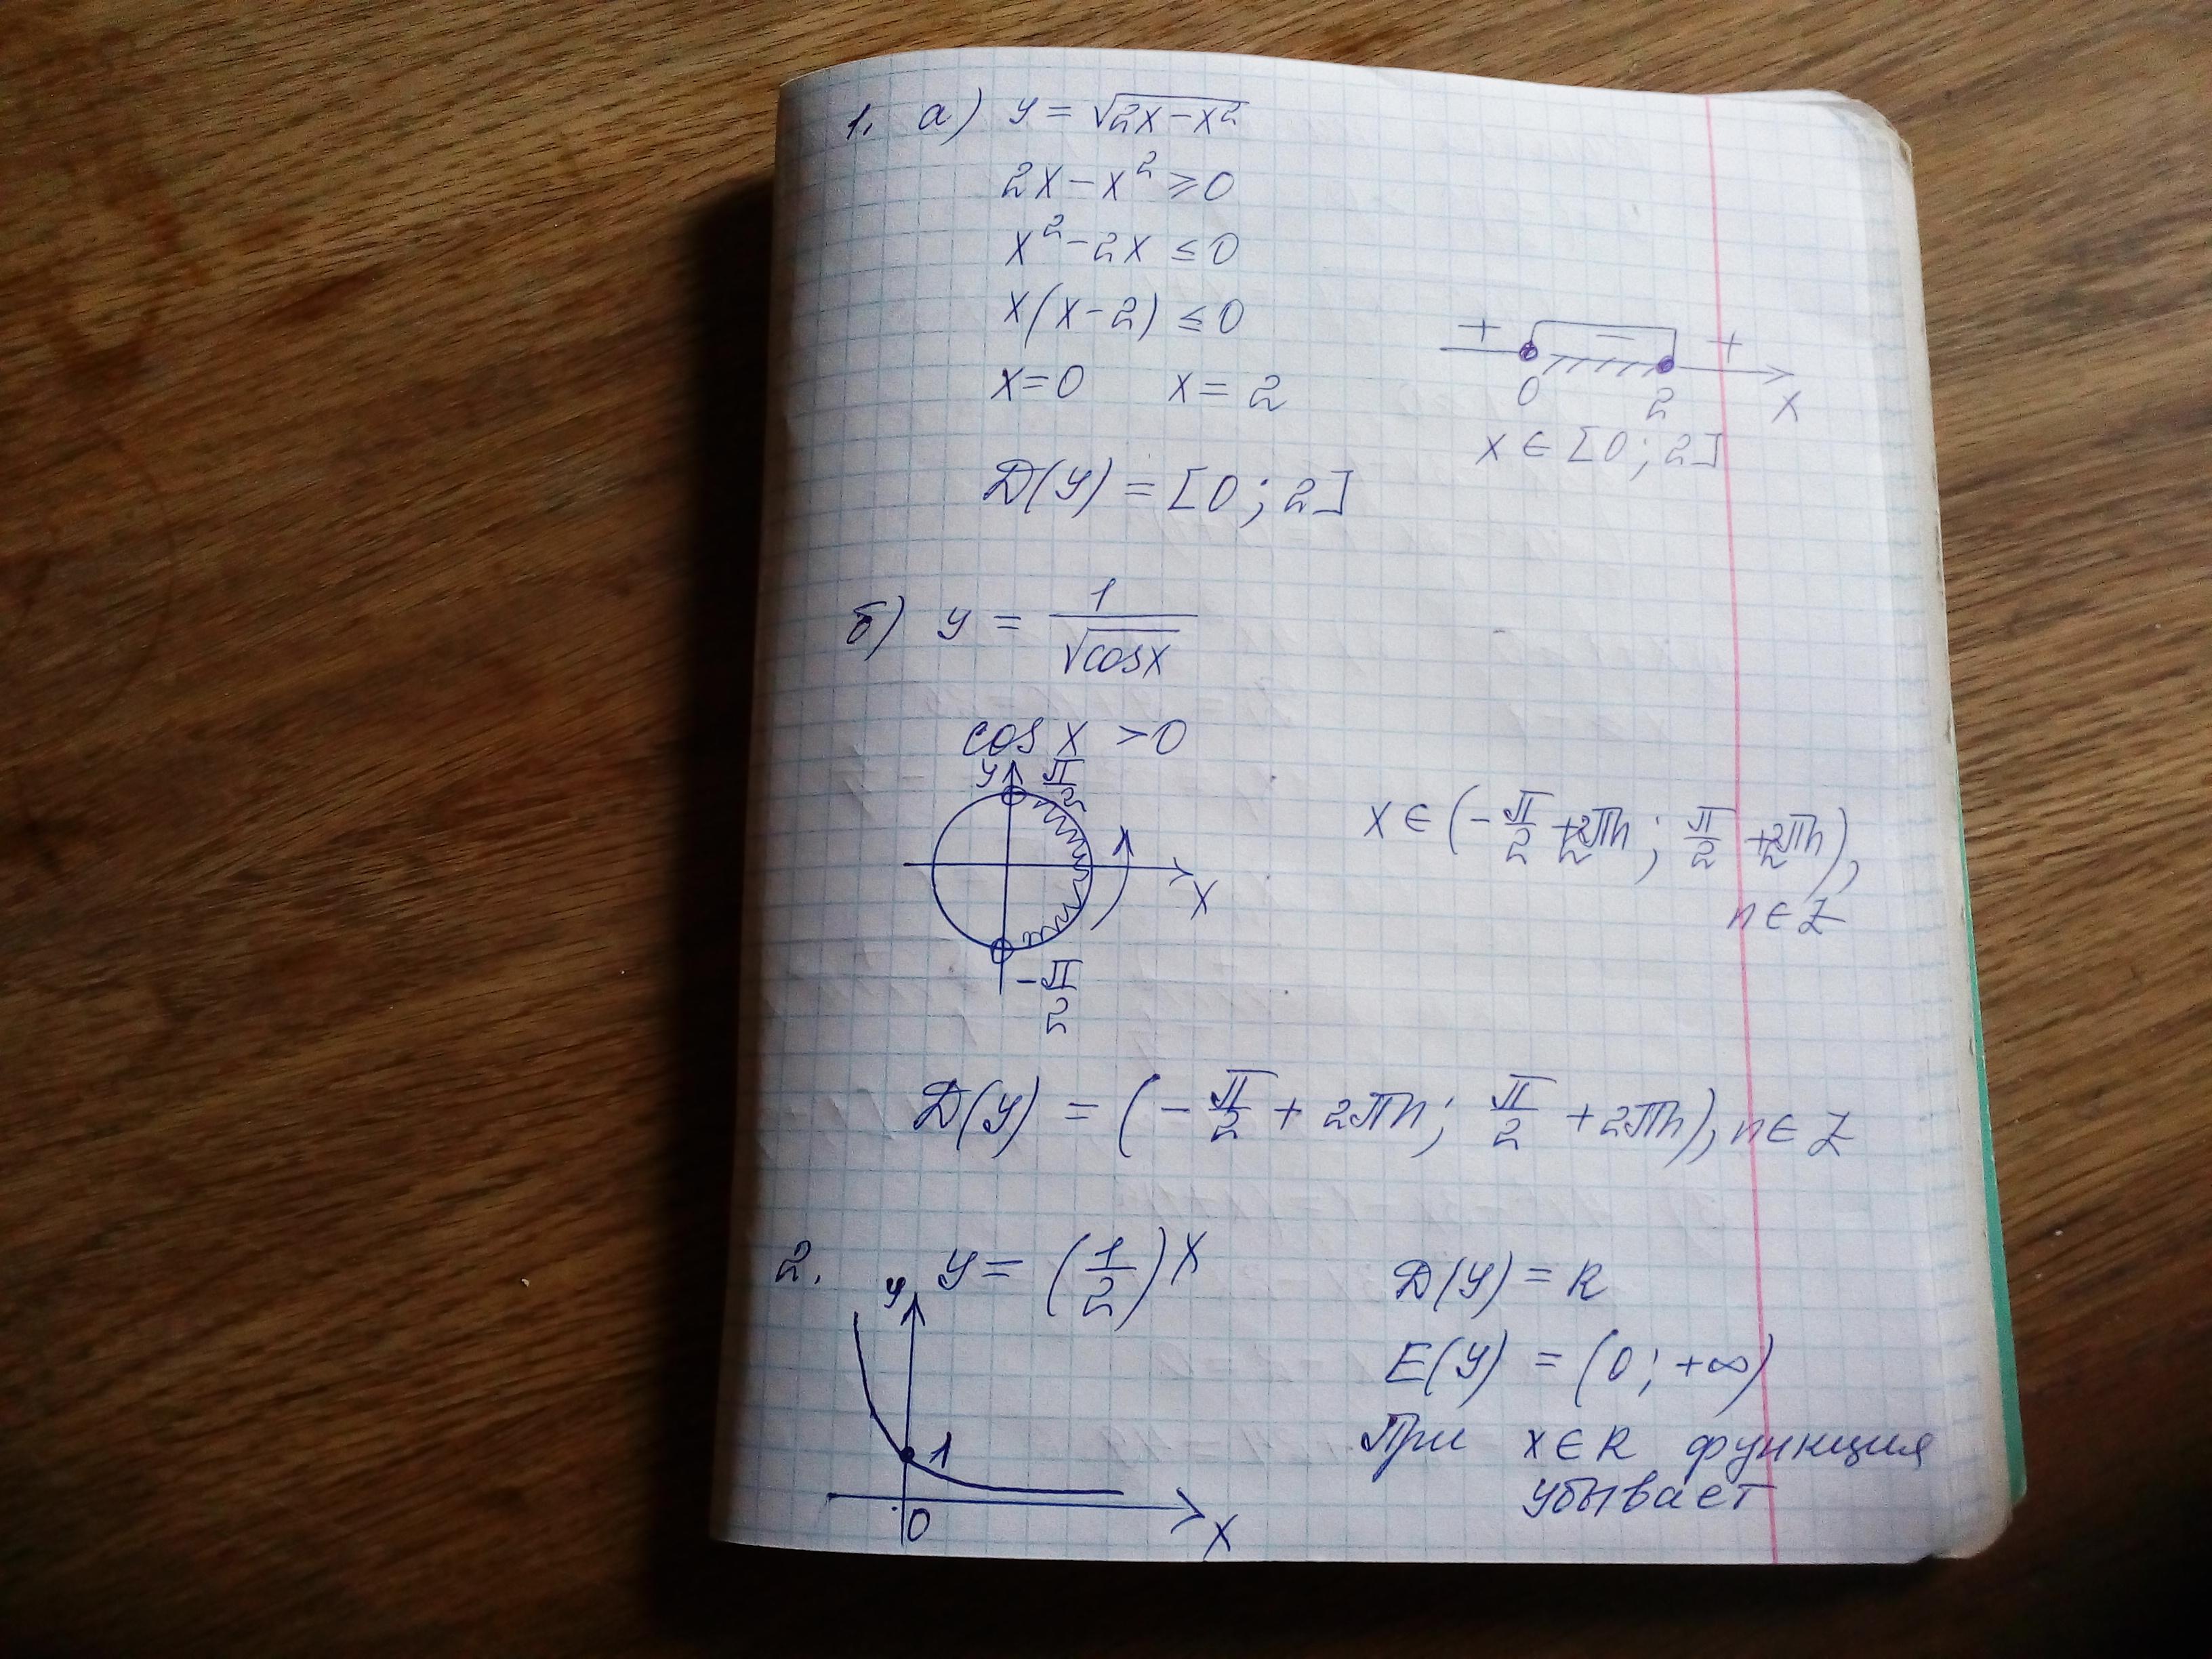 1. а) y = √(2x-x²)
2x-x² ≥ 0
x²-2x ≤ 0
x(x-2) ≤ 0
+ - +
0 2 x
x=0 x=2
x ∈ [0; 2]
D(y) = [0; 2]
б) y = 1/√(cosx)
cos x > 0
y π/2
x
-π/2
x ∈ (-π/2 + 2πn; π/2 + 2πn),
n ∈ Z
D(y) = (-π/2 + 2πn; π/2 + 2πn), n ∈ Z
2. y = (1/2)^x
y
1
0 x
D(y) = R
E(y) = (0; +∞)
При x ∈ R функция
убывает